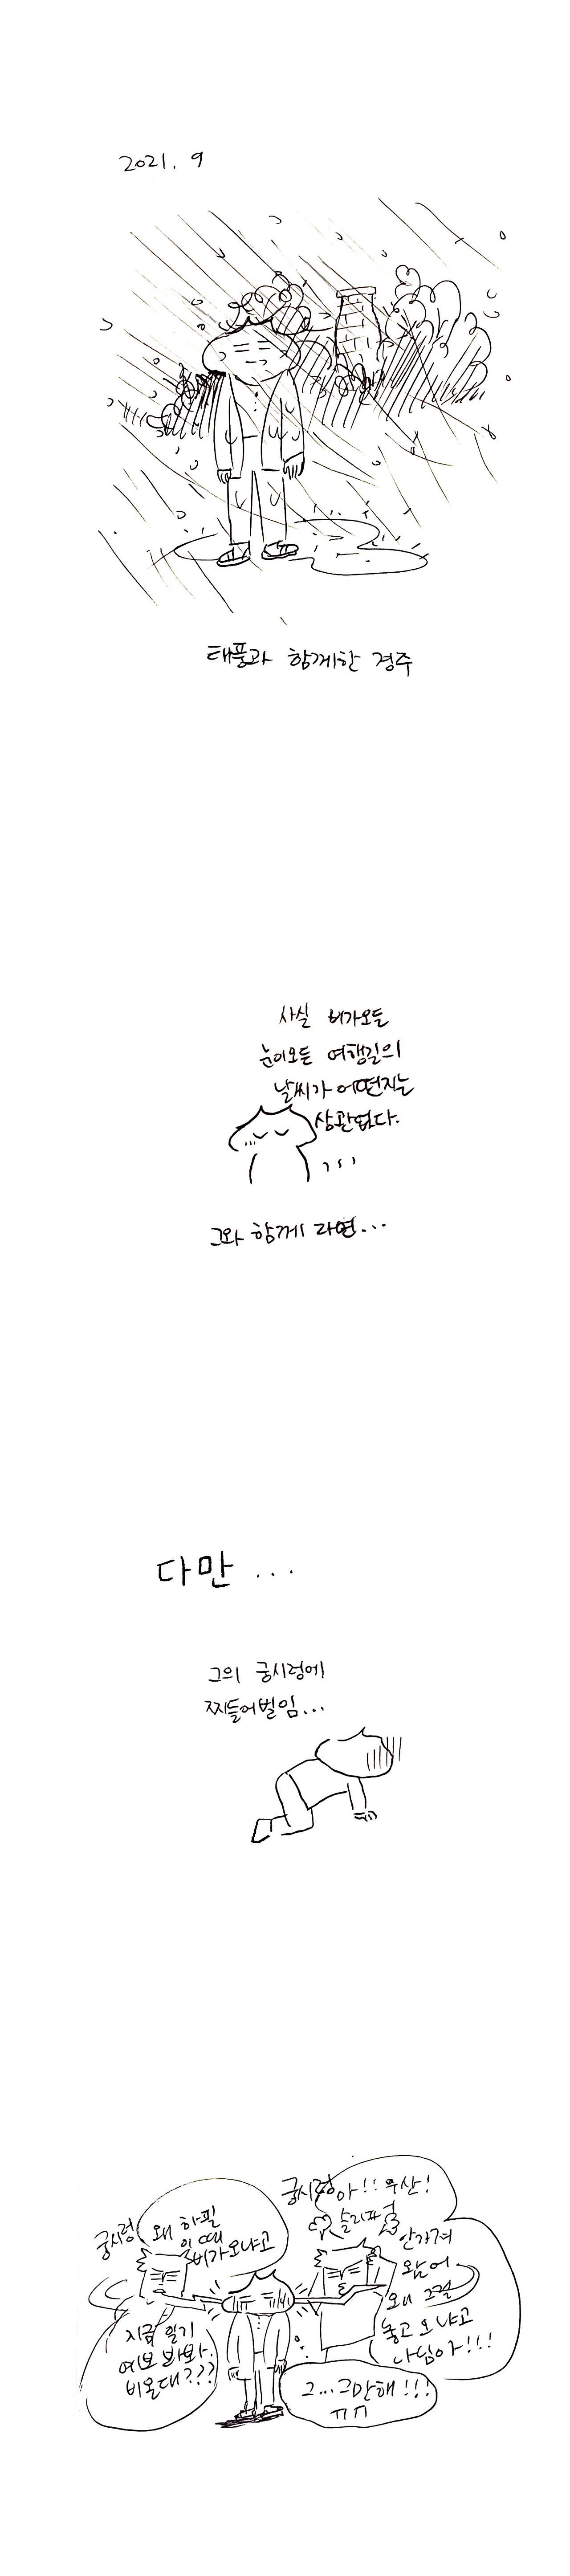 2021. 9
태풍과 함께한 경주
사실 비가오든
눈이오든 여행길의
날씨가 어떤지는
상관없다.
그와 함께 라면...
다만 ...
그의 궁시렁에
찌들어벌임...
궁시렁
왜 하필
이 때
비가오냐고
지금 일기
예보 봐봐.
비온대???
궁시렁
아!! 우산!
슬리퍼
안가져
왔어
왜 그걸
놓고 오냐고
나님아!!!
그...그만해!!!
ㅠㅠ